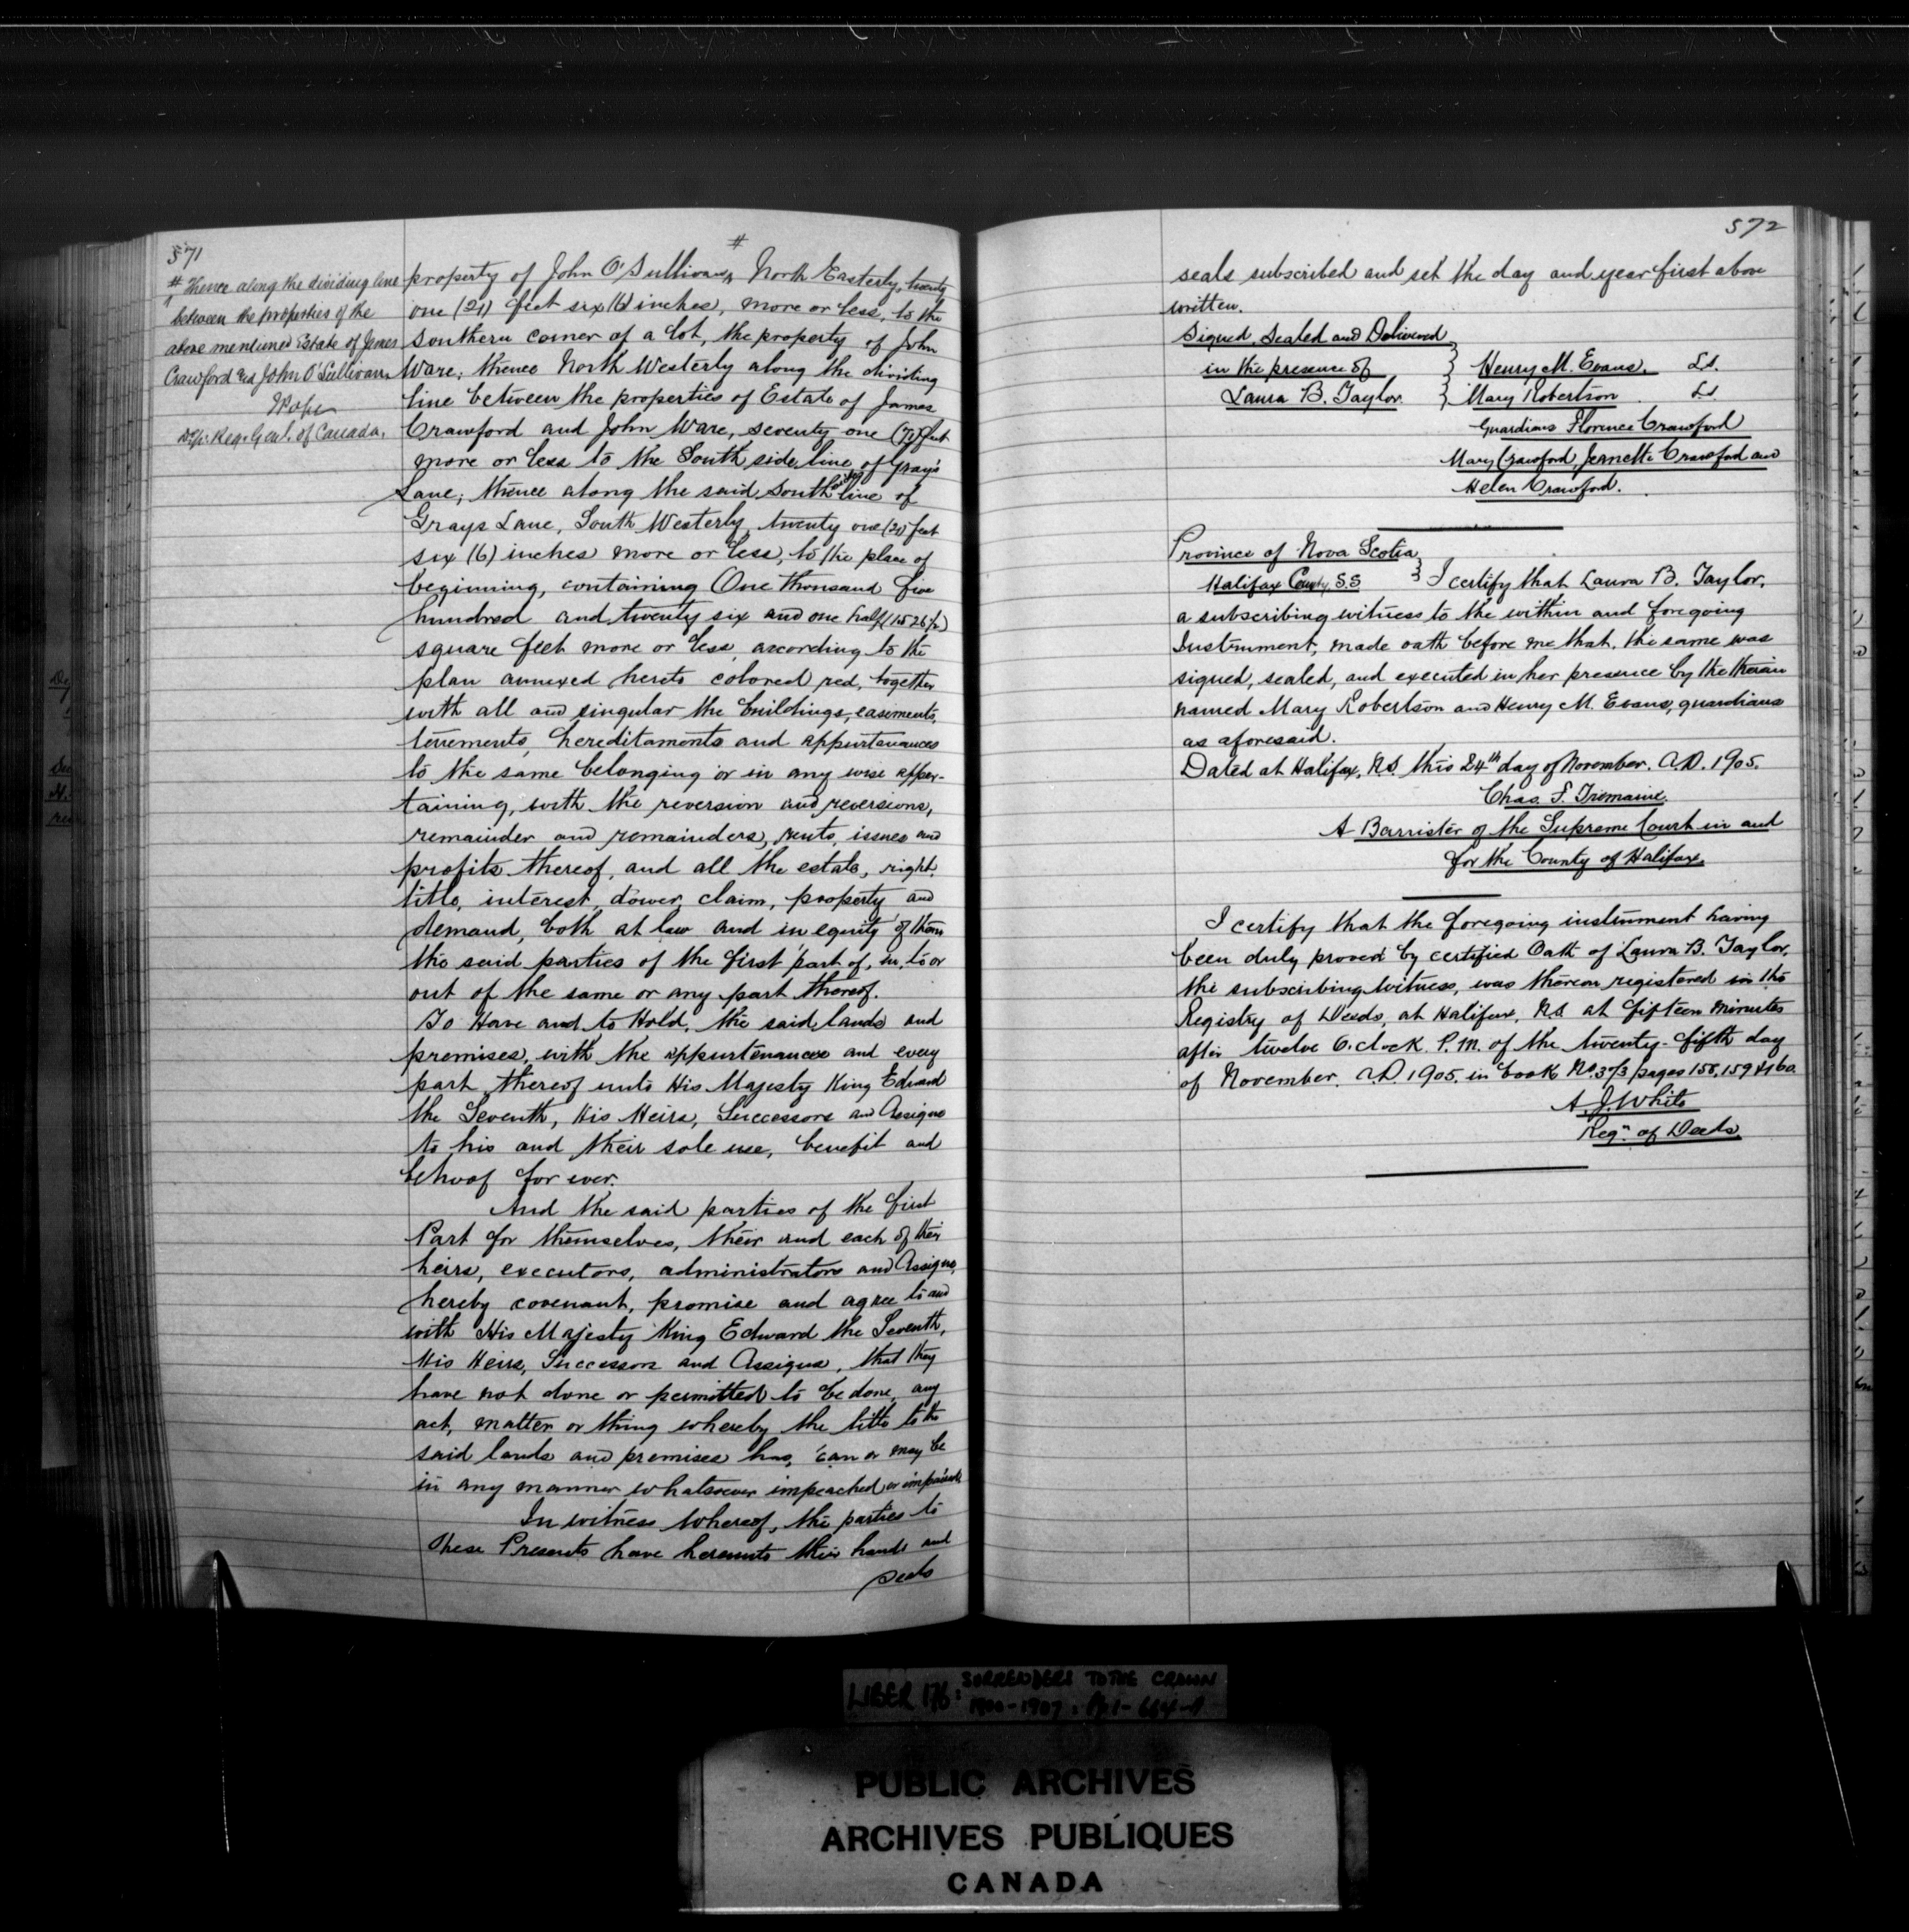 571
# Thence along the dividing line
between the properties of the
above mentioned Estate of James
Crawford and John O'Sullivan
Pope
Dep. Reg. Genl. of Canada.
#
property of John O'Sullivan, North Easterly, twenty
one (21) feet six (6) inches, more or less, to the
southern corner of a lot, the property of John
Ware; thence North Westerly along the dividing
line between the properties of Estate of James
Crawford and John Ware, seventy one (71) feet
more or less to the South side line of Gray's
Lane; thence along the said South side line of
Grays Lane, South Westerly, twenty one (21) feet
six (6) inches more or less, to the place of
beginning, containing One thousand five
hundred and twenty six and one half (1526½)
square feet more or less, according to the
plan annexed hereto colored red, together
with all and singular the buildings, easements,
tenements, hereditaments and appurtenances
to the same belonging or in any wise apper-
taining, with the reversion and reversions,
remainder and remainders, rents, issues and
profits thereof, and all the estate, right,
title, interest, dower, claim, property and
demand, both at law and in equity of them
the said parties of the first part of, in, to or
out of the same or any part thereof.
To Have and to Hold, the said lands and
premises, with the appurtenances and every
part thereof unto His Majesty King Edward
the Seventh, His Heirs, Successors and Assigns
to his and their sole use, benefit and
behoof for ever.
And the said parties of the first
Part for themselves, their and each of their
heirs, executors, administrators and Assigns,
hereby covenant, promise and agree to and
with His Majesty King Edward the Seventh,
His Heirs, Successors and Assigns, that they
have not done or permitted to be done, any
act, matter or thing whereby the title to the
said lands and premises has, can or may be
in any manner whatsoever impeached or impaired.
In witness whereof, the parties to
these Presents have hereunto their hands and
seals
572
seals subscribed and set the day and year first above
written.
Signed, Sealed and Delivered
in the presence of } Henry M. Evans. L.S.
Laura B. Taylor. } Mary Robertson. L.S.
Guardians Florence Crawford
Mary Crawford, Jeanette Crawford and
Helen Crawford.
Province of Nova Scotia
Halifax County S.S } I certify that Laura B. Taylor,
a subscribing witness to the within and foregoing
Instrument, made oath before me that, the same was
signed, sealed, and executed in her presence by the therein
named Mary Robertson and Henry M. Evans, guardians
as aforesaid.
Dated at Halifax, N.S. this 24th day of November. A.D. 1905.
Chas. F. Tremaine.
A Barrister of the Supreme Court in and
for the County of Halifax.
I certify that the foregoing instrument having
been duly proved by certified Oath of Laura B. Taylor,
the subscribing witness, was thereon registered in the
Registry of Deeds, at Halifax, N.S. at fifteen minutes
after twelve O'clock P.M. of the twenty-fifth day
of November. A.D. 1905. in book No. 373 pages 158, 159 & 160.
A. J. White
Regr. of Deeds.
LIBER 176: SURRENDERS TO THE CROWN
1900-1907: Pp. 1-664-A
PUBLIC ARCHIVES
ARCHIVES PUBLIQUES
CANADA